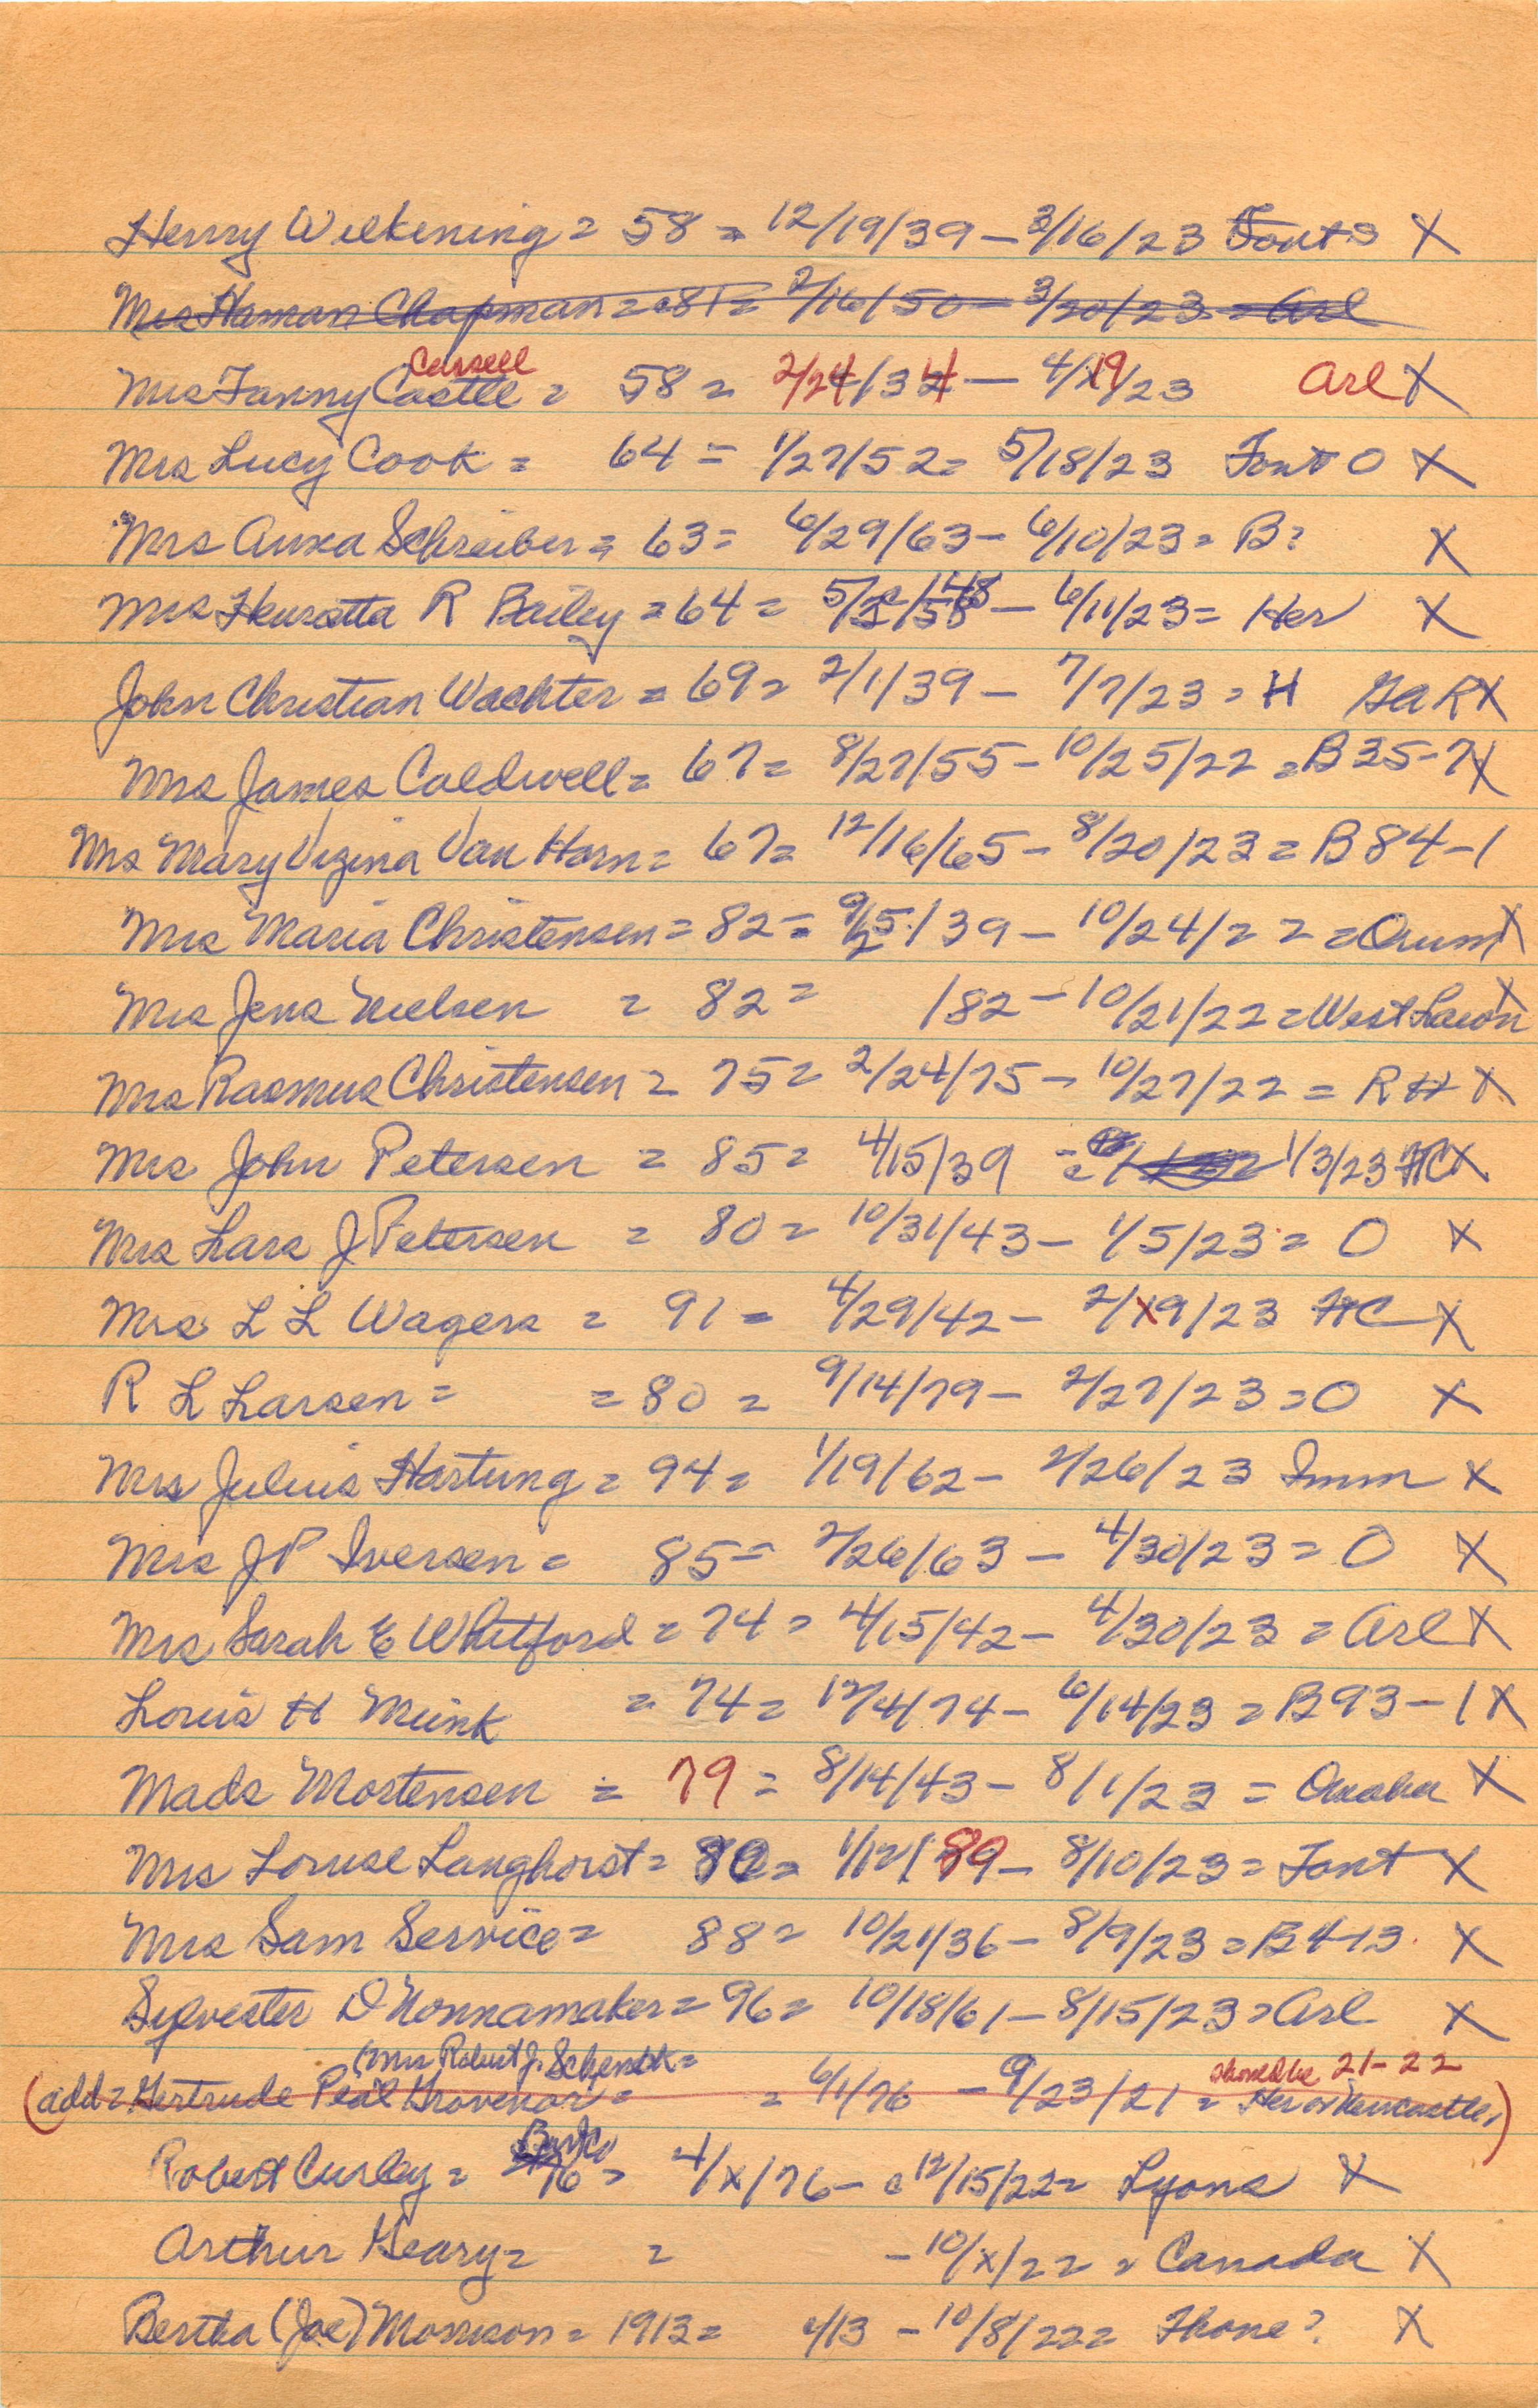 Henry Wilkening = 58 = 12/19/39 - 3/16/23 Font S X
Mrs Haman Chapman = 81 = 2/16/50 - 3/20/23 = Arl
Mrs Fanny Castle = 58 = 2/24/34 - 4/19/23 Arl X
Mrs Lucy Cook = 64 = 1/27/52 = 5/18/23 Font O X
Mrs Anna Schreiber = 63 = 6/29/63 - 6/10/23 = B? X
Mrs R Bailey = 64 = - 6/11/23 = Her X
John Christian Wachter = 69 = 2/1/39 - 7/7/23 = H GaR X
Mrs James Caldwell = 67 = 8/27/55 - 10/25/22 = B 35-7 X
Mrs Mary Virgina Van Horn = 67 = 12/16/65 - 8/20/23 = B 84-1
Mrs Maria Christensen = 82 = /39 - 10/24/22 = Orum X
Mrs Jens Nielsen = 82 = /82 - 10/21/22 = West Lawn X
Mrs Rasmus Christensen = 75 = 2/24/75 - 10/27/22 = R H X
Mrs John Petersen = 85 = 4/15/39 - 1/3/23 HC X
Mrs Lars J Petersen = 80 = 10/31/43 - 1/5/23 = O X
Mrs L L Wagers = 91 = 4/29/42 - 2/X9/23 HC X
R L Larsen = = 80 = 9/14/79 - 2/27/23 = O X
Mrs Julius Hartung = 94 = 1/19/62 - 2/26/23 Imm X
Mrs J P Iversen = 85 = 2/26/63 - 4/30/23 = O X
Mrs Sarah E Whitford = 74 = 4/15/42 - 4/30/23 = Arl X
Louis H Meink = 74 = 12/4/74 - 6/14/23 = B 93-1 X
Mads Mortensen = 79 = 8/14/43 - 8/1/23 = Omaha X
Mrs Louise Langhorst = 80 = 1/12/89 - 8/10/23 = Font X
Mrs Sam Service = 88 = 10/21/36 - 8/9/23 = B 4-13 X
Sylvester D Nonnamaker = 96 = 10/18/61 - 8/15/23 = Arl X
(Mrs Robert J. Schenck = should be 21-22
(add = Gertrude Peal Grovenor = = 6/1/76 - 9/23/21 = Her or Newcastle)
Robert Curley = 76 = 4/X/76 - 12/15/22 = Lyons X
Arthur Geary = = - 10/X/22 = Canada X
Bertha (Joe) Morrison = 1913 = 4/13 - 10/8/22 = Thone? X